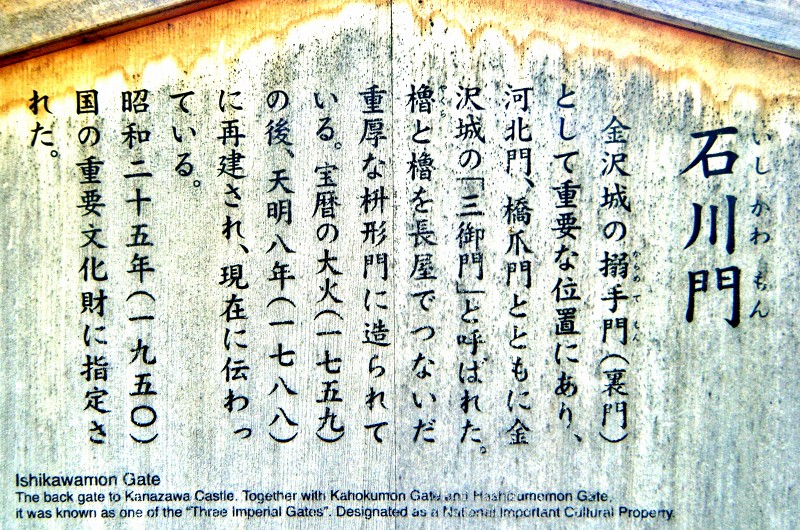 石川門
いしかわもん
金沢城の搦手門（裏門）
からめてもん
として重要な位置にあり、
河北門、橋爪門とともに金
沢城の「三御門」と呼ばれた。
櫓と櫓を長屋でつないだ
重厚な枡形門に造られて
いる。宝暦の大火（一七五九）
の後、天明八年（一七八八）
に再建され、現在に伝わっ
ている。
昭和二十五年（一九五〇）
国の重要文化財に指定さ
れた。
Ishikawamon Gate
The back gate to Kanazawa Castle. Together with Kahokumon Gate and Hashizumemon Gate,
it was known as one of the "Three Imperial Gates". Designated as a National Important Cultural Property.